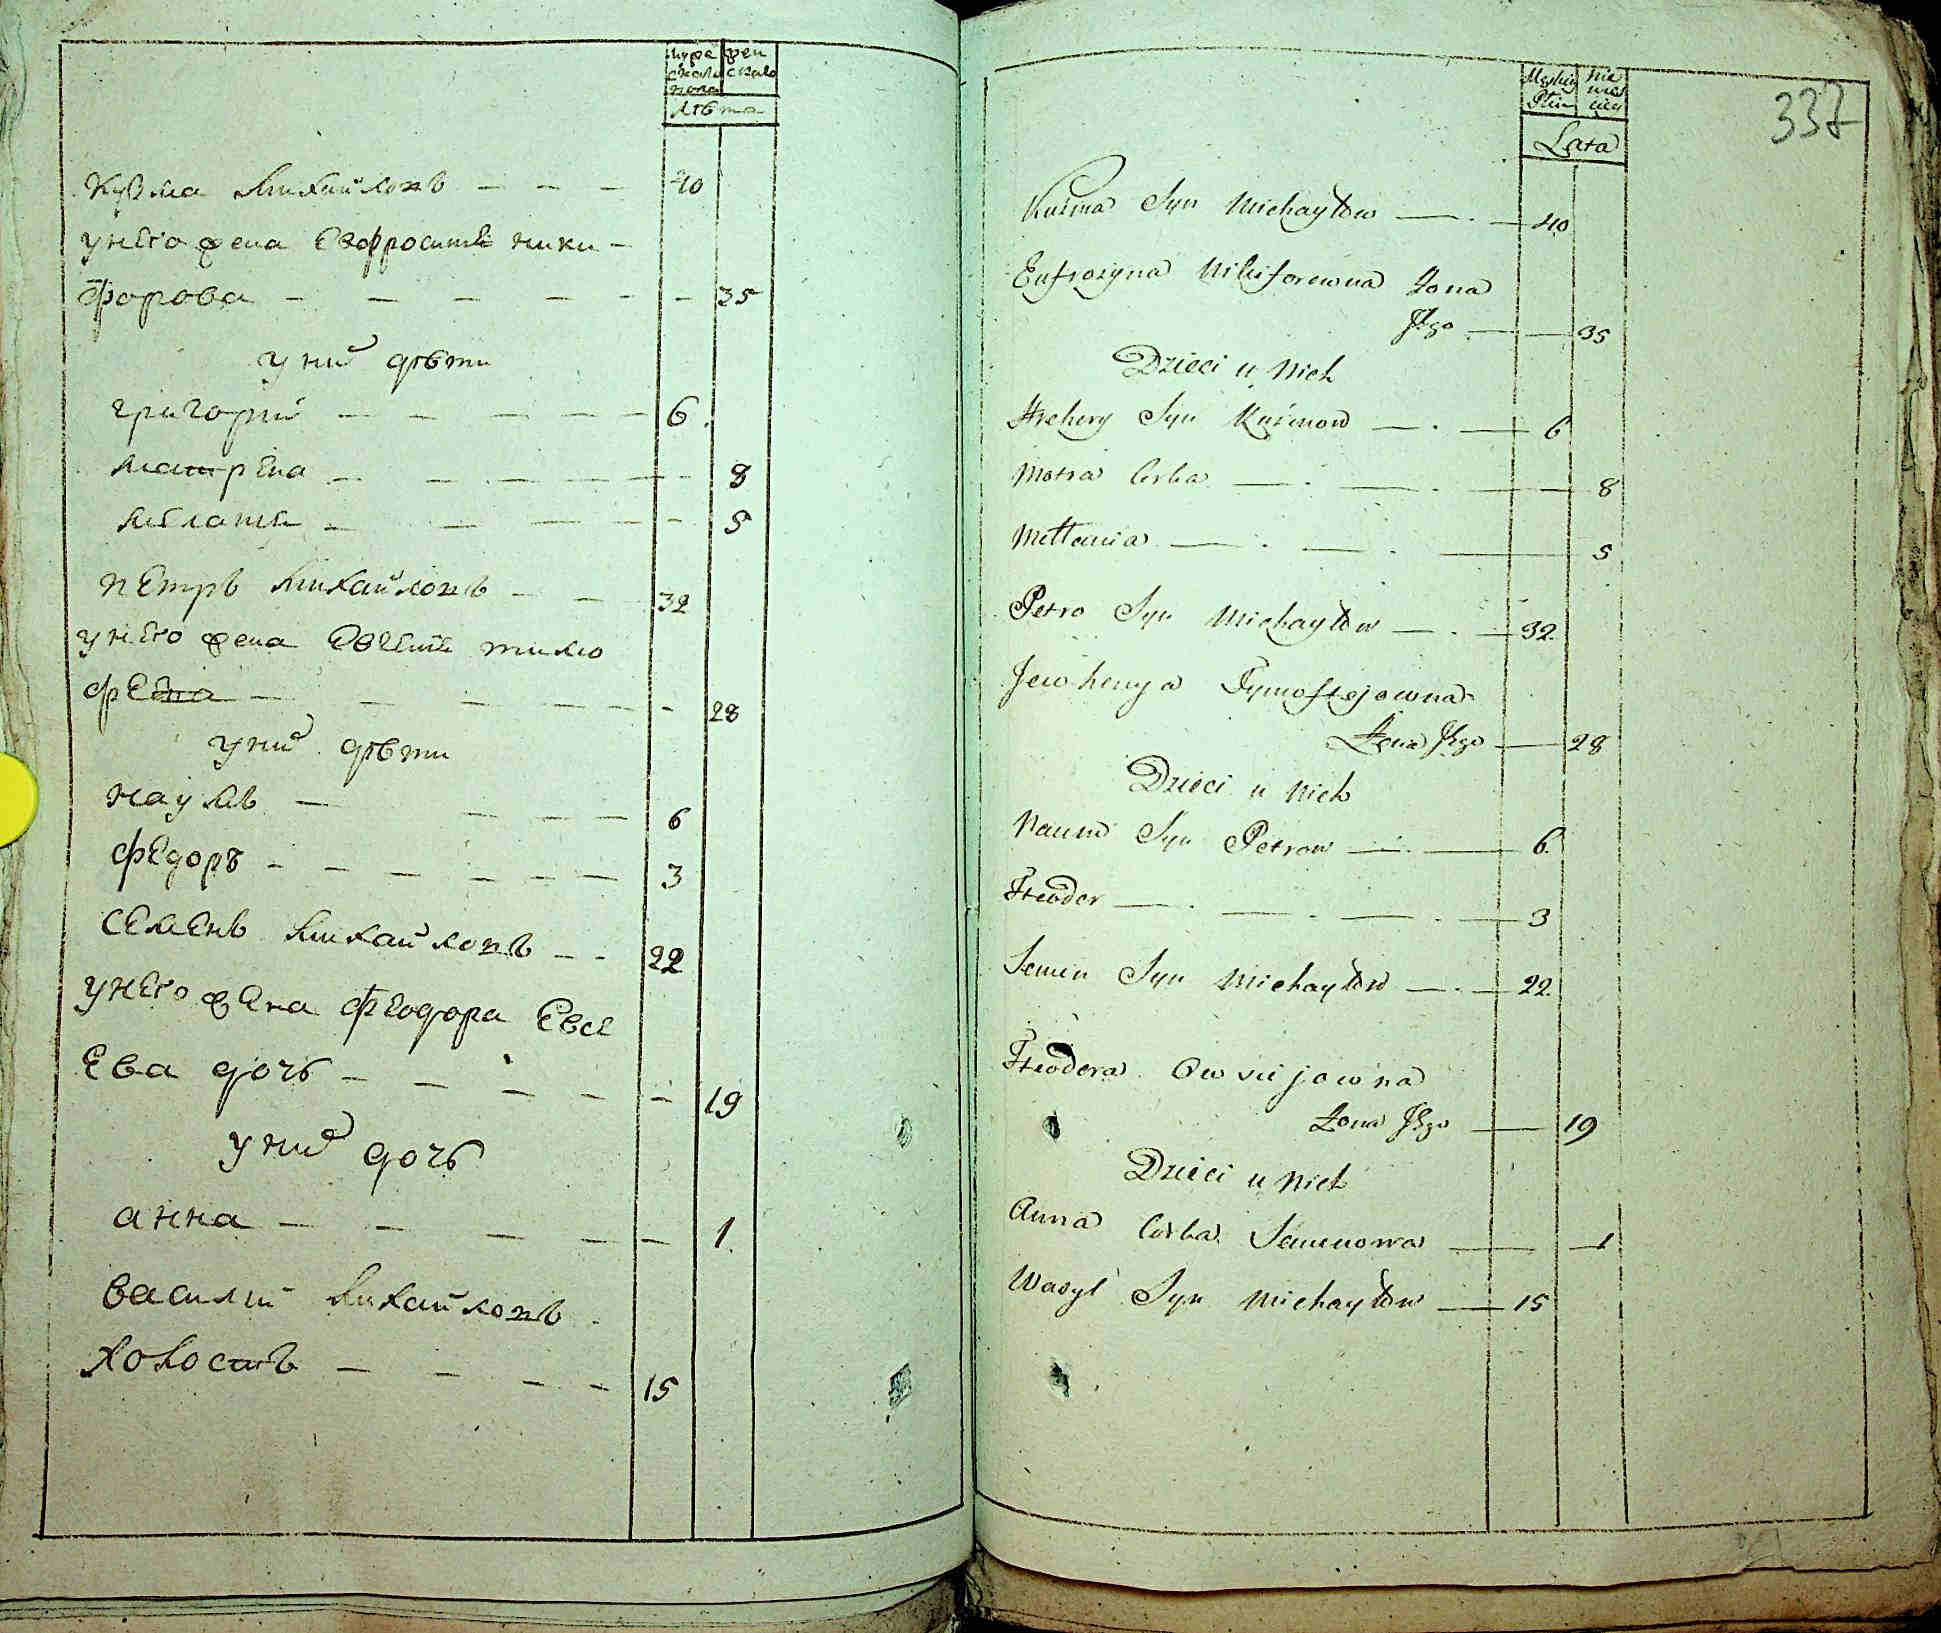 муже
скаго
пола
жен
скаго
лѣта
кузма михайловъ — — — 40
унего жена Евфросинѣ ники —
форова — — — — — — 35
уних дѣти
григории — — — — — 6
матрена — — — — — — 8
мелания — — — — — 5
петръ михайловъ — — 32
унего жена Евгения тимо
феева — — — — — — 28
уних дѣти
наумъ — — — — 6
федоръ — — — — — — 3
семенъ михайловъ — — 22
унего жена феодора Евсе
ева дочь — — — — — 19
уних дочь
анна — — — — — 1
василий михайловъ
холостъ — — — — 15
337
Męskiey
Płci
nie
wies
ciey
Lata
Kuźma Syn Michayłow — . — 40
Eufrozyna Nikiforowna Żona
Jego — — 35
Dzieci u Nich
Hrehory Syn Kuźmow — . — 6
Motra Corka — . — . — 8
Mełania — . — . — 5
Petro Syn Michayłow — . — 32
Jewhenya Tymofiejowna
Żona Jego — 28
Dzieci u Nich
Naum Syn Petrow — . — 6
Fteodor — . — . — . — 3
Semen Syn Michayłow — . — 22
Fteodora Owsiejowna
Żona Jego — 19
Dzieci u Nich
Anna Corka Semenowa — — 1
Wasyl Syn Michayłow — 15